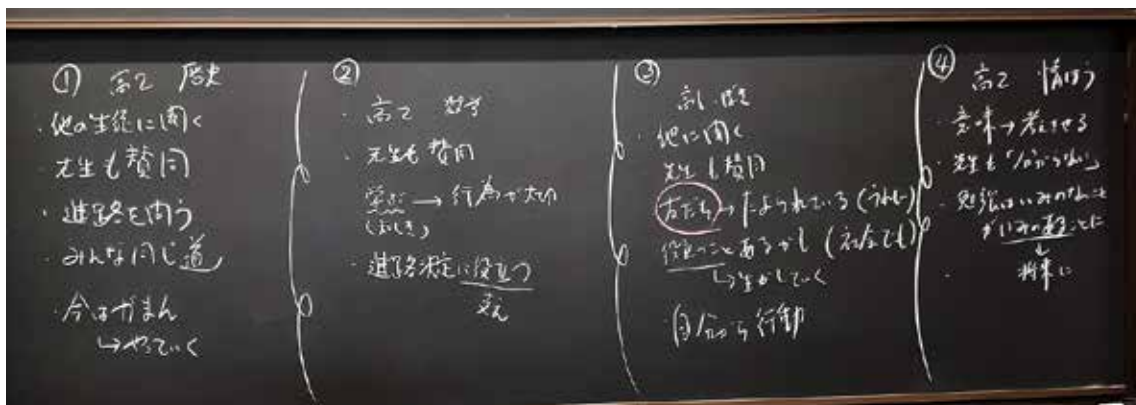 ① 高2 歴史
・他の生徒に聞く
・先生も賛同
・進路を問う
・みんな同じ道
・今はがまん
↳やっていく
②
・高2 数学
・先生も賛同
学ぶ → 行為が大切
・進路決定に役立つ
③
・他に聞く
先生も賛同
友だち → たよられている(うれしい)
役立つことあるかも(社会でも)
↳生かしていく
自分から行動
④
高2 情ほう
・意味→考えさせる
・先生も「分からない」
・勉強はいみのないこと
↓
将来に